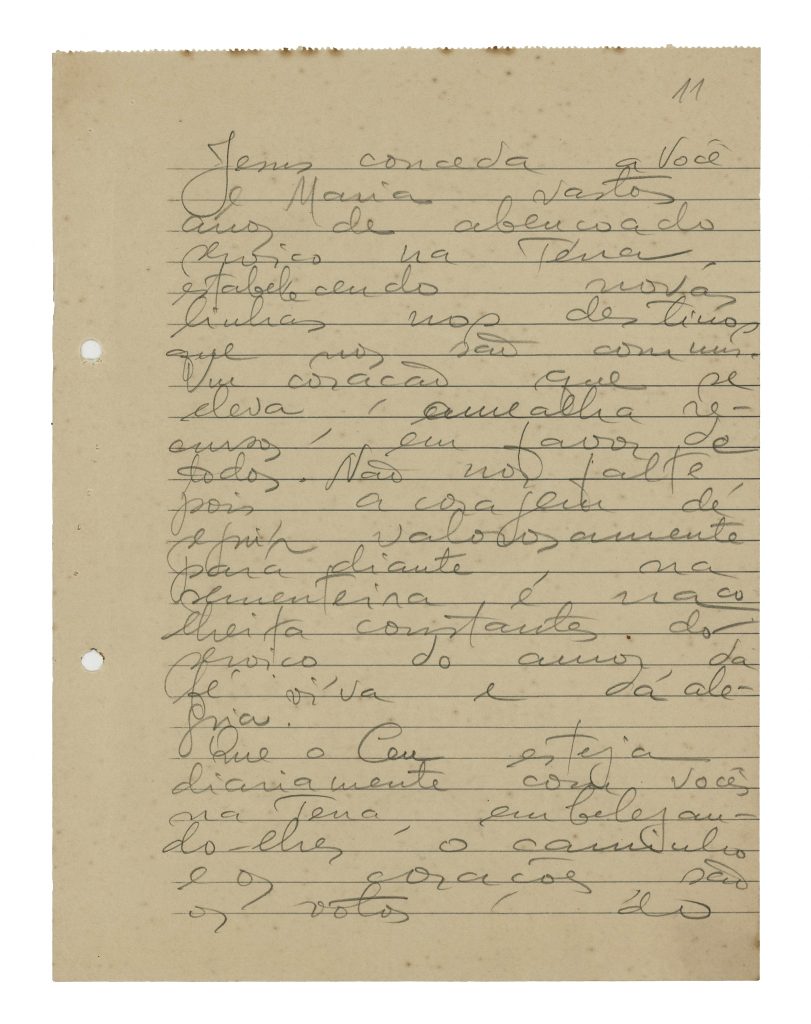 11
Jesus conceda a Você
e Maria vastos
anos de abencoado
serviço na Terra,
estabelecendo novas
linhas nos destinos
que nos são communs.
Um coracão que se
eleva amealha re-
cursos em favor de
todos. Não nos falte,
pois a coragem de
seguir valorosamente
para diante, na
sementeira e na co
lheita constantes do
serviço do amor da
fé viva e da ale-
gria.
Que o Ceu esteja
diariamente com vocês
na Terra embelezan-
do-lhes o caminho
e os corações são
os votos do